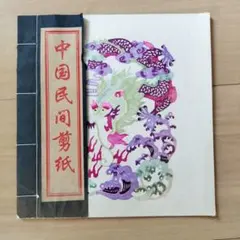 中国民间剪纸